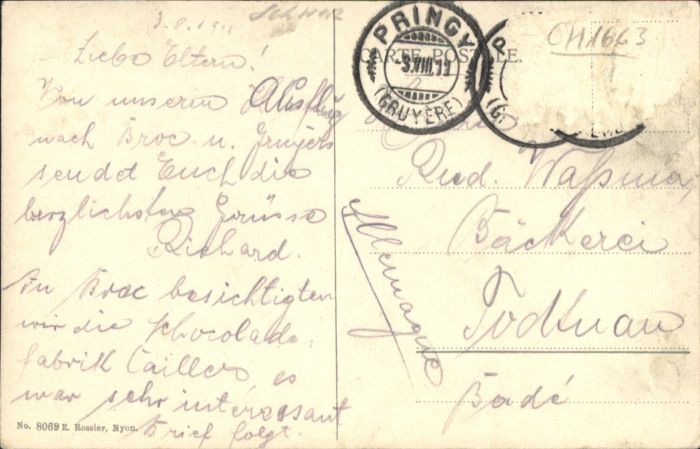 3.8.1911
Schweiz
CH1663
Liebe Eltern!
Von unserm Ausflug
nach Broc u. Gruyers
sendet Euch die
herzlichsten Grüsse
Richard.
In Broc besichtigten
wir die Schocolade-
fabrik Cailler, es
war sehr intéressant
Brief folgt.
No. 8069 E. Rossier, Nyon.
CARTE POSTALE.
PRINGY
-3.VIII.11
(GRUYÈRE)
Rud. Waßmer
Bäckerei
Todtnau
Badé
Allemagne